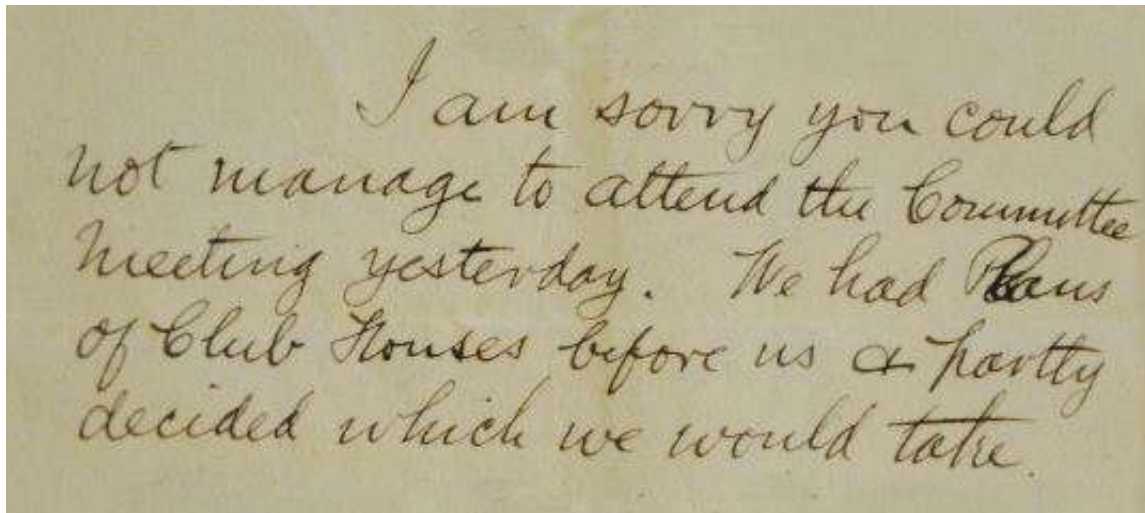 I am sorry you could
not manage to attend the Committee
Meeting yesterday. We had Plans
of Club Houses before us & partly
decided which we would take.